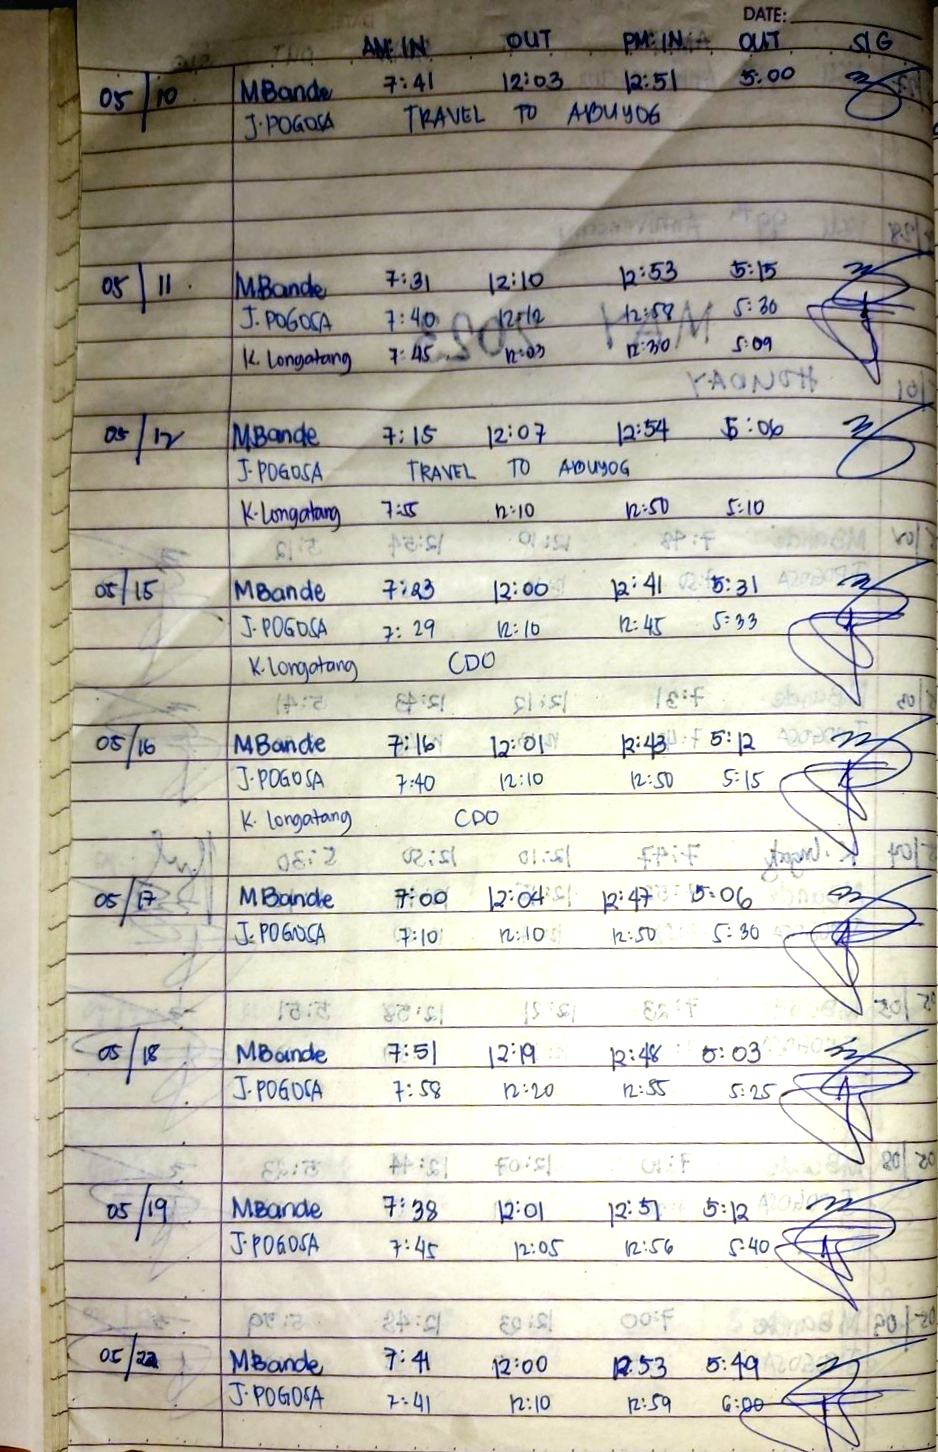 DATE:
AM: IN OUT PM: IN OUT SIG
05/10 MBande 7:41 12:03 12:51 5:00
J. POGOSA TRAVEL TO ABUYOG
05/11 MBande 7:31 12:10 12:53 5:15
J. POGOSA 7:40 12:12 12:58 5:30
K. Longatang 7:45 12:03 12:30 5:09
05/12 MBande 7:15 12:07 12:54 5:06
J. POGOSA TRAVEL TO ABUYOG
K. Longatang 7:55 12:10 12:50 5:10
05/15 MBande 7:23 12:00 12:41 5:31
J. POGOSA 7:29 12:10 12:45 5:33
K. Longatang CDO
05/16 MBande 7:16 12:01 12:43 5:12
J. POGOSA 7:40 12:10 12:50 5:15
K. Longatang CDO
05/17 MBande 7:00 12:04 12:47 5:06
J. POGOSA 7:10 12:10 12:50 5:30
05/18 MBande 7:51 12:19 12:48 5:03
J. POGOSA 7:58 12:20 12:55 5:25
05/19 MBande 7:38 12:01 12:51 5:12
J. POGOSA 7:45 12:05 12:56 5:40
05/22 MBande 7:41 12:00 12:53 5:49
J. POGOSA 7:41 12:10 12:59 6:00